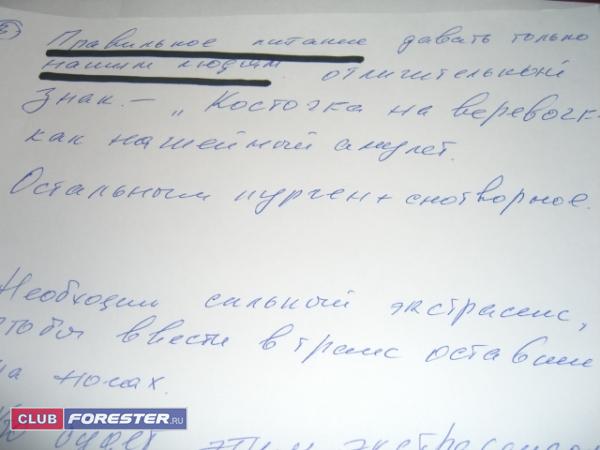 Правильное питание давать только
нашим людям отличительный
знак. – „Косточка на веревочк
как нашейный амулет.
Остальным пурген + снотворное.
Необходим сильный экстрасенс,
чтобы ввести в транс оставши
на ногах.
будет этим экстрасенсом
CLUB FORESTER.RU